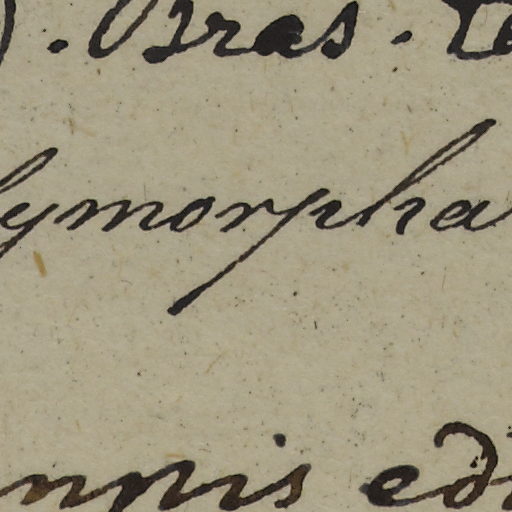 ). Bras.
lymorpha
nnis edi